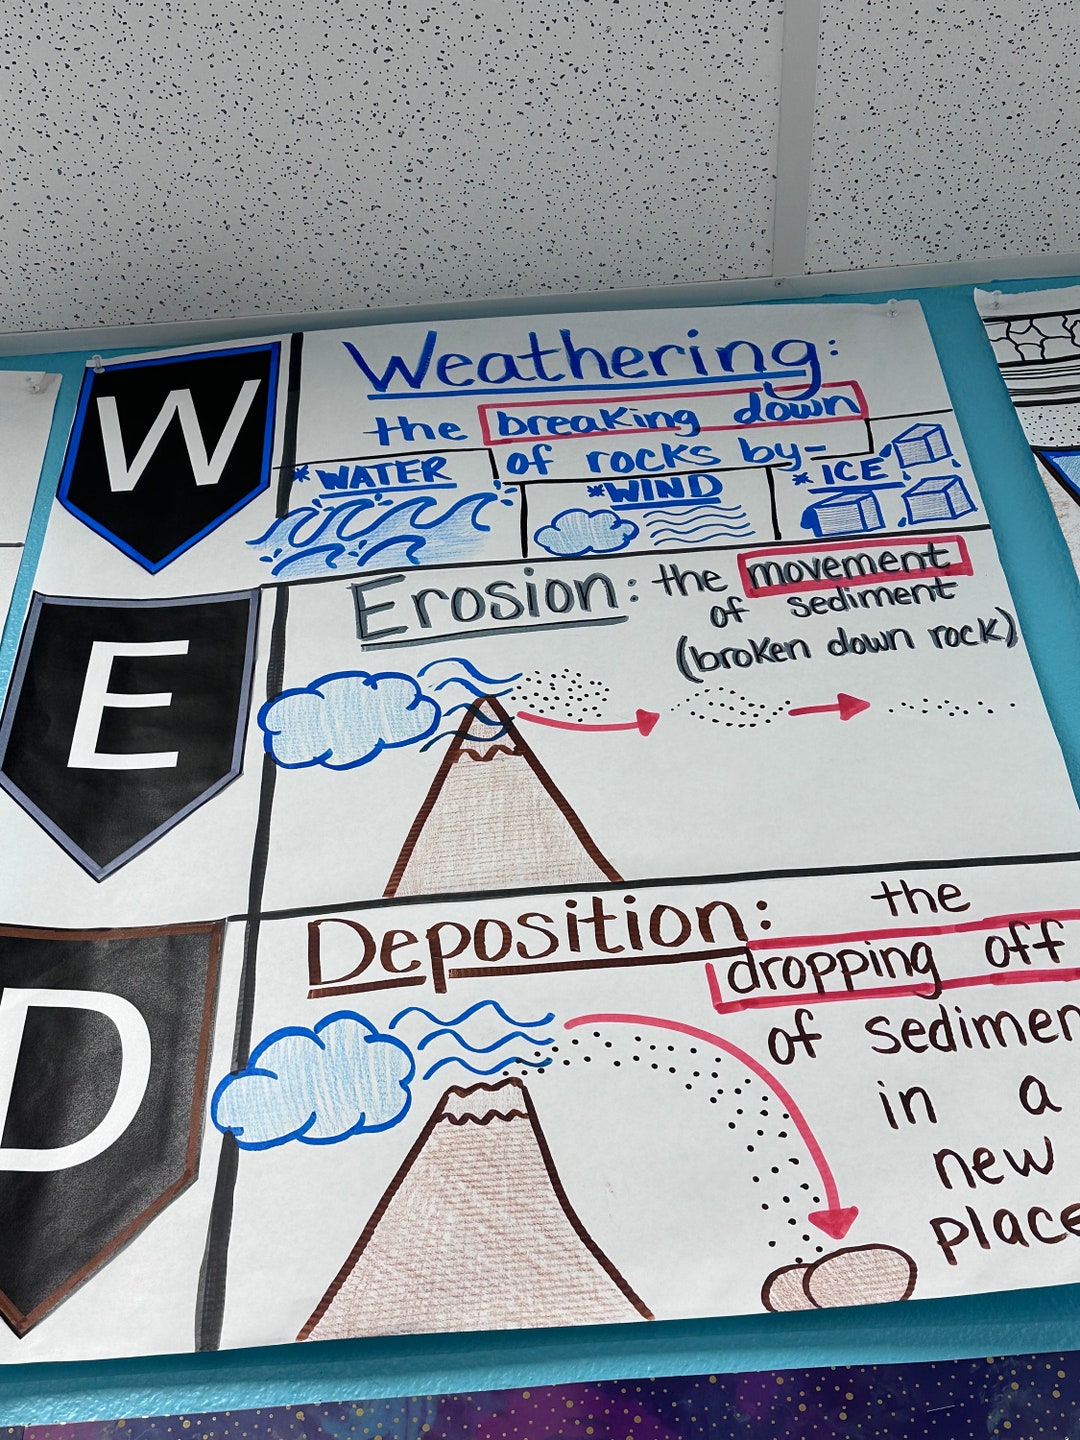 W
Weathering:
the breaking down
of rocks by-
*WATER
*WIND
*ICE
E
Erosion: the movement
of sediment
(broken down rock)
D
Deposition: the
dropping off
of sedimen
in a
new
place